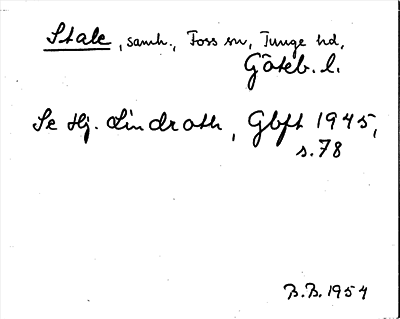 Stale, samh., Foss sn, Tunge hd,
Göteb. l.
Se Hj. Lindroth, Gbft 1945,
s. 78
B.B. 1954